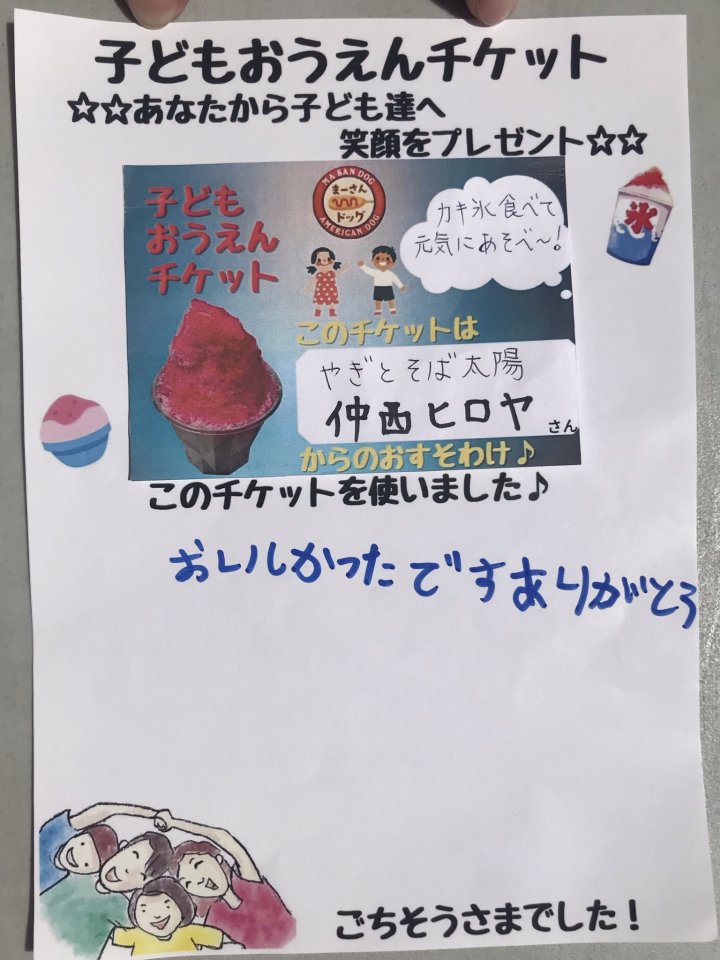 子どもおうえんチケット
☆☆あなたから子ども達へ
笑顔をプレゼント☆☆
子ども
おうえん
チケット
MA SAN DOG
まーさん
ドッグ
AMERICAN DOG
カキ氷食べて
元気にあそべ〜!
氷
このチケットは
やぎとそば太陽
仲西ヒロヤ さん
からのおすそわけ♪
このチケットを使いました♪
おいしかったですありがとう
ごちそうさまでした!